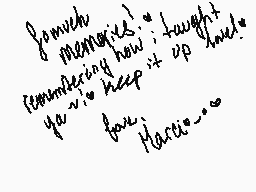 So much
memories!
remembering how i taught
ya ~! keep it up love!
from,
Marcio